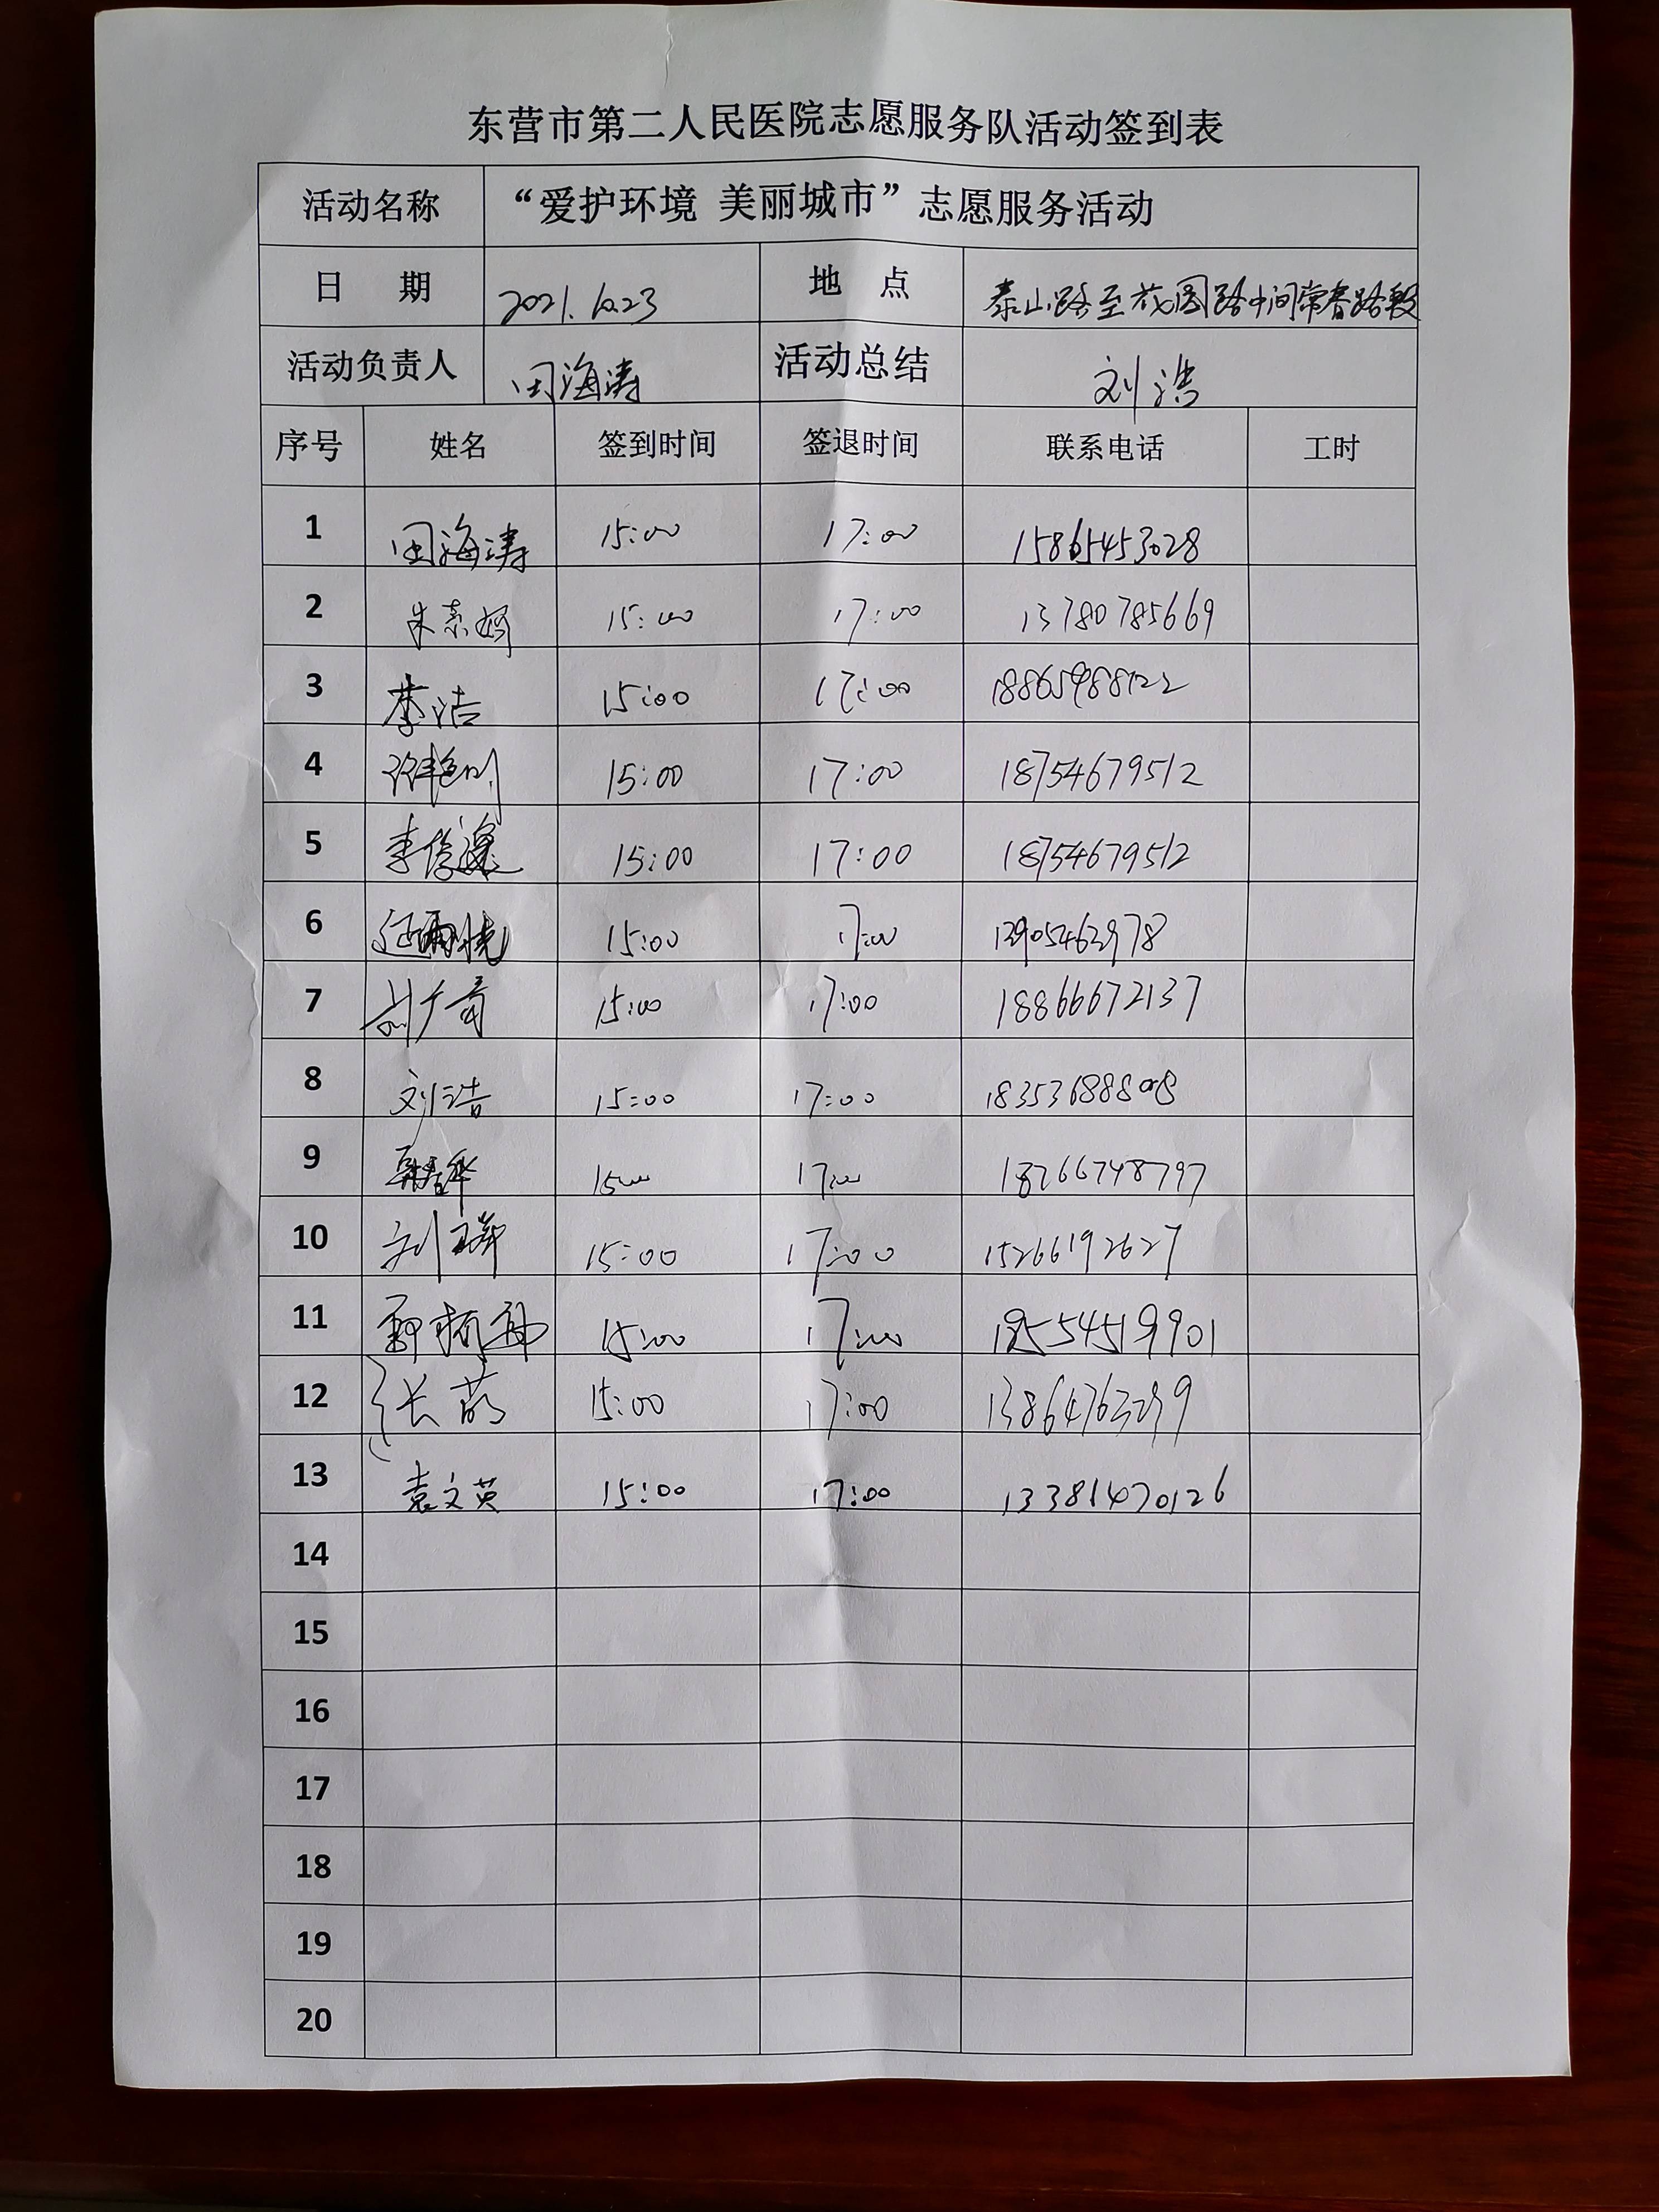 东营市第二人民医院志愿服务队活动签到表
活动名称 “爱护环境 美丽城市”志愿服务活动
日 期 2021.10.23 地 点 泰山路至花园路中间常春路段
活动负责人 田海涛 活动总结 刘浩
序号 姓名 签到时间 签退时间 联系电话 工时
1 田海涛 15:00 17:00 15865453028
2 15:00 17:00 13780785669
3 李洁 15:00 17:00
4 15:00 17:00 18754679512
5 15:00 17:00 18754679512
6 15:00 17:00 13905462978
7 15:00 17:00 18866672137
8 刘浩 15:00 17:00 18353688808
9 15:00 17:00 18266748797
10 15:00 17:00 15266192627
11 15:00 17:00
12 15:00 17:00
13 袁文英 15:00 17:00
14
15
16
17
18
19
20